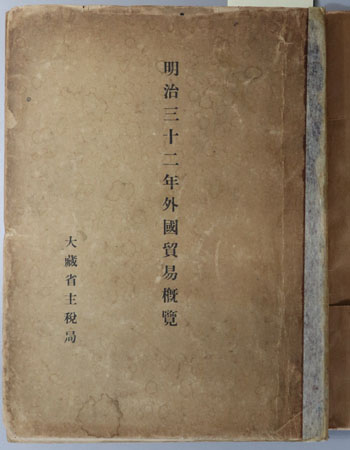 明治三十二年外國貿易概覽
大藏省主稅局